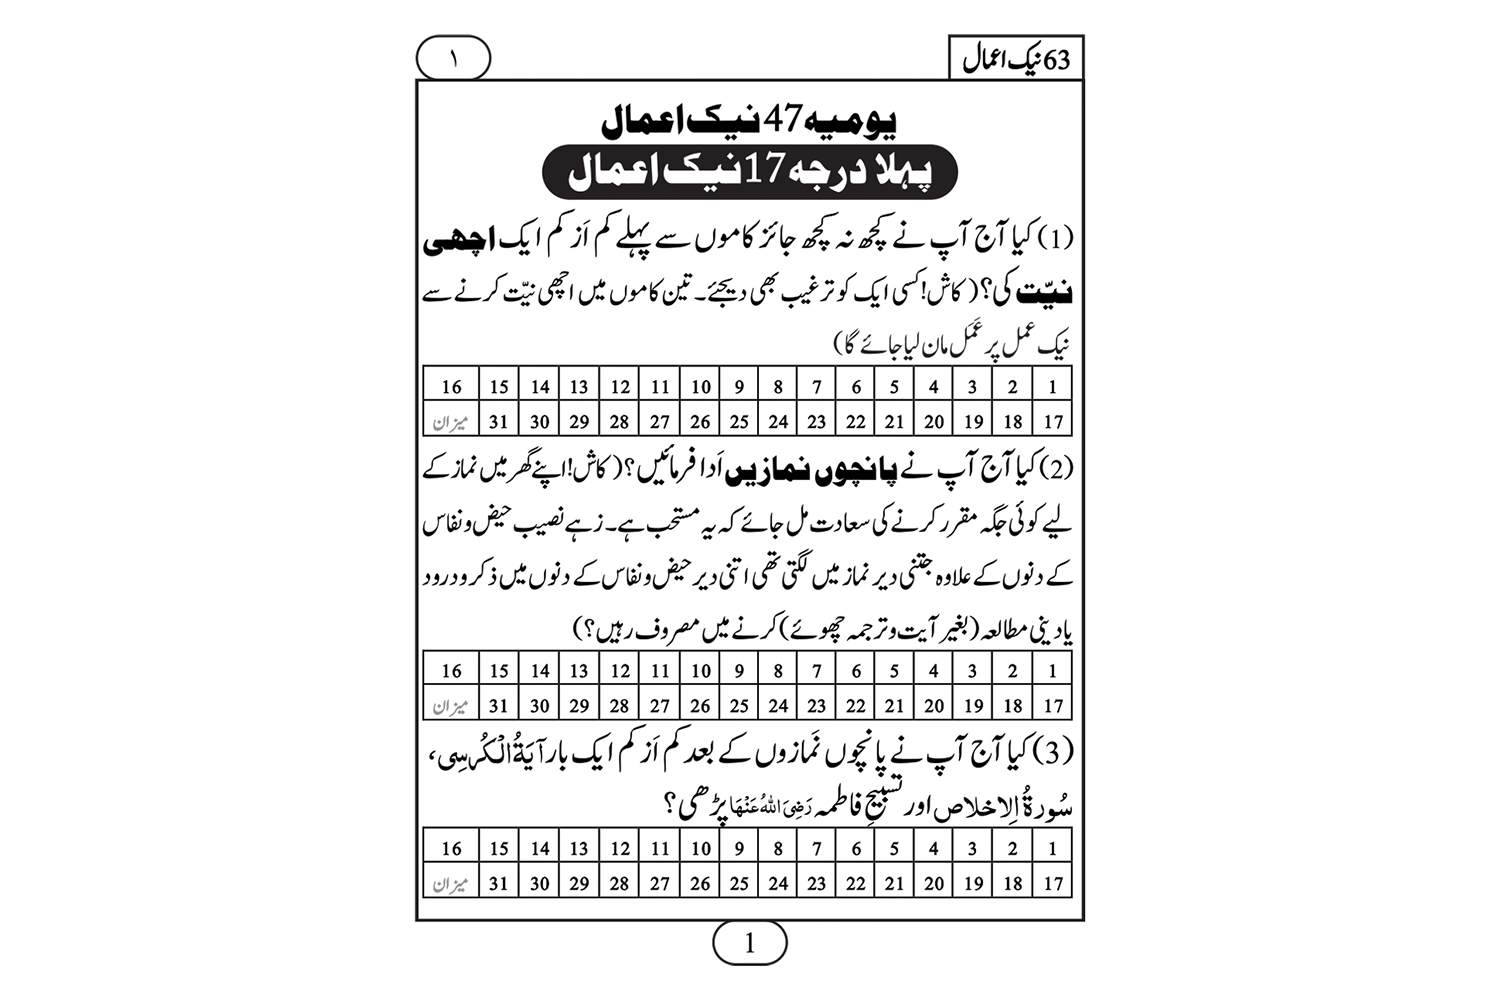 63 نیک اعمال
۱
یومیہ 47 نیک اعمال
پہلا درجہ 17 نیک اعمال
(1) کیا آج آپ نے کچھ نہ کچھ جائز کاموں سے پہلے کم اَز کم ایک اچھی
نیّت کی؟ (کاش! کسی ایک کو ترغیب بھی دیجئے۔ تین کاموں میں اچھی نیّت کرنے سے
نیک عمل پر عَمَل مان لیا جائے گا)
1 2 3 4 5 6 7 8 9 10 11 12 13 14 15 16
17 18 19 20 21 22 23 24 25 26 27 28 29 30 31 میزان
(2) کیا آج آپ نے پانچوں نمازیں اَدا فرمائیں؟ (کاش! اپنے گھر میں نماز کے
لیے کوئی جگہ مقرر کرنے کی سعادت مل جائے کہ یہ مستحب ہے۔ زہے نصیب حیض و نفاس
کے دنوں کے علاوہ جتنی دیر نماز میں لگتی تھی اتنی دیر حیض و نفاس کے دنوں میں ذکر و درود
یا دینی مطالعہ (بغیر آیت و ترجمہ چھوئے) کرنے میں مصروف رہیں؟)
1 2 3 4 5 6 7 8 9 10 11 12 13 14 15 16
17 18 19 20 21 22 23 24 25 26 27 28 29 30 31 میزان
(3) کیا آج آپ نے پانچوں نَمازوں کے بعد کم اَز کم ایک بار آیَۃُ الْکُرسِی،
سُورۃُ اِلاخلاص اور تسبیحِ فاطمہ رَضِیَ اللہُ عَنْہَا پڑھی؟
1 2 3 4 5 6 7 8 9 10 11 12 13 14 15 16
17 18 19 20 21 22 23 24 25 26 27 28 29 30 31 میزان
1